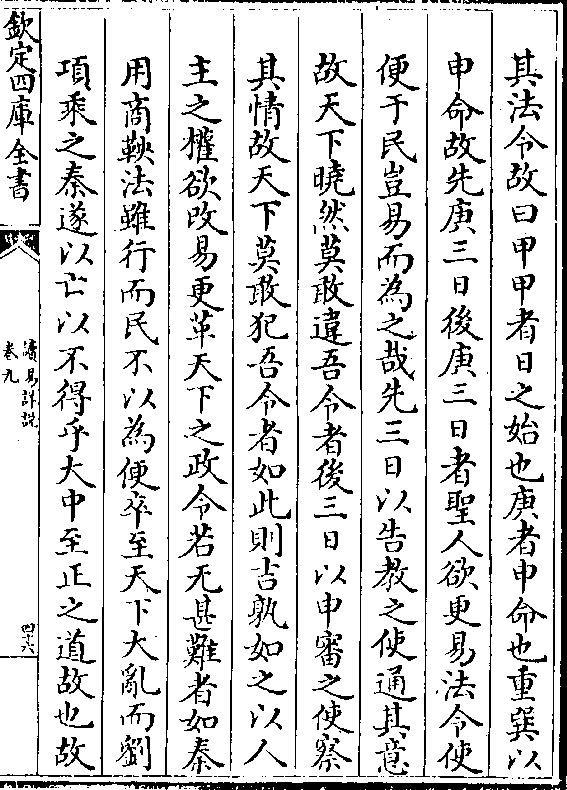 其法令故曰甲甲者日之始也庚者申命也重巽以
申命故先庚三日後庚三日者聖人欲更易法令使
便于民豈易而為之哉先三日以告教之使通其意
故天下曉然莫敢違吾令者後三日以申審之使察
其情故天下莫敢犯吾令者如此則吉孰如之以人
主之權欲改易更革天下之政令若无甚難者如秦
用商鞅法雖行而民不以為便卒至天下大亂而劉
項乘之秦遂以亡以不得乎大中至正之道故也故
欽定四庫全書
讀易詳説
卷九
四十六